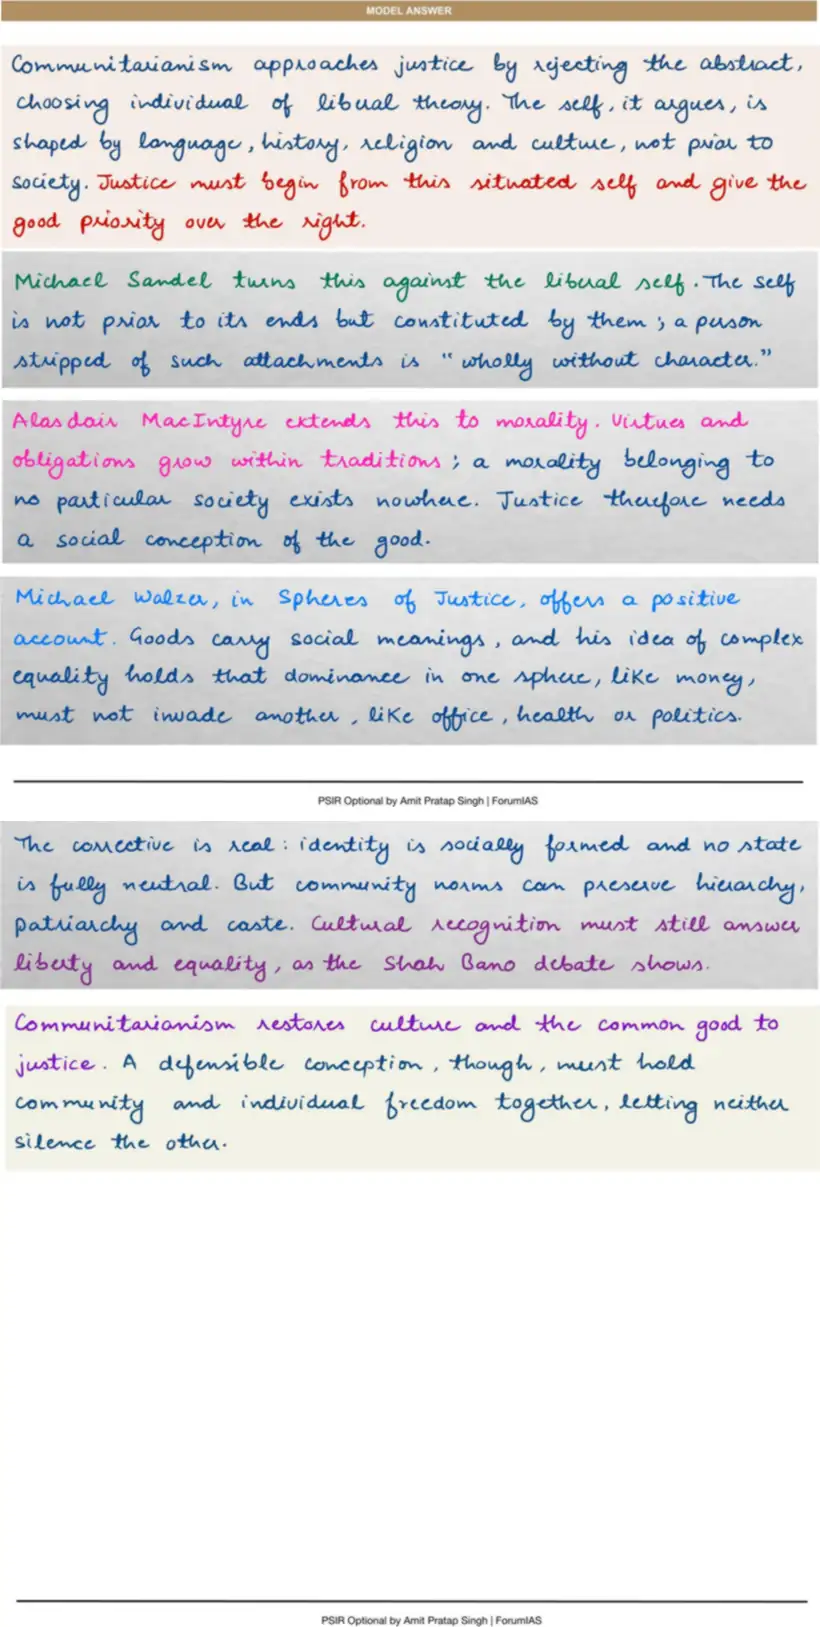 MODEL ANSWER
Communitarianism approaches justice by rejecting the abstract,
choosing individual of liberal theory. The self, it argues, is
shaped by language, history, religion and culture, not prior to
society. Justice must begin from this situated self and give the
good priority over the right.
Michael Sandel turns this against the liberal self. The self
is not prior to its ends but constituted by them; a person
stripped of such attachments is "wholly without character."
Alasdair MacIntyre extends this to morality. Virtues and
obligations grow within traditions; a morality belonging to
no particular society exists nowhere. Justice therefore needs
a social conception of the good.
Michael Walzer, in Spheres of Justice, offers a positive
account. Goods carry social meanings, and his idea of complex
equality holds that dominance in one sphere, like money,
must not invade another, like office, health or politics.
PSIR Optional by Amit Pratap Singh | ForumIAS
The corrective is real: identity is socially formed and no state
is fully neutral. But community norms can preserve hierarchy,
patriarchy and caste. Cultural recognition must still answer
liberty and equality, as the Shah Bano debate shows.
Communitarianism restores culture and the common good to
justice. A defensible conception, though, must hold
community and individual freedom together, letting neither
silence the other.
PSIR Optional by Amit Pratap Singh | ForumIAS